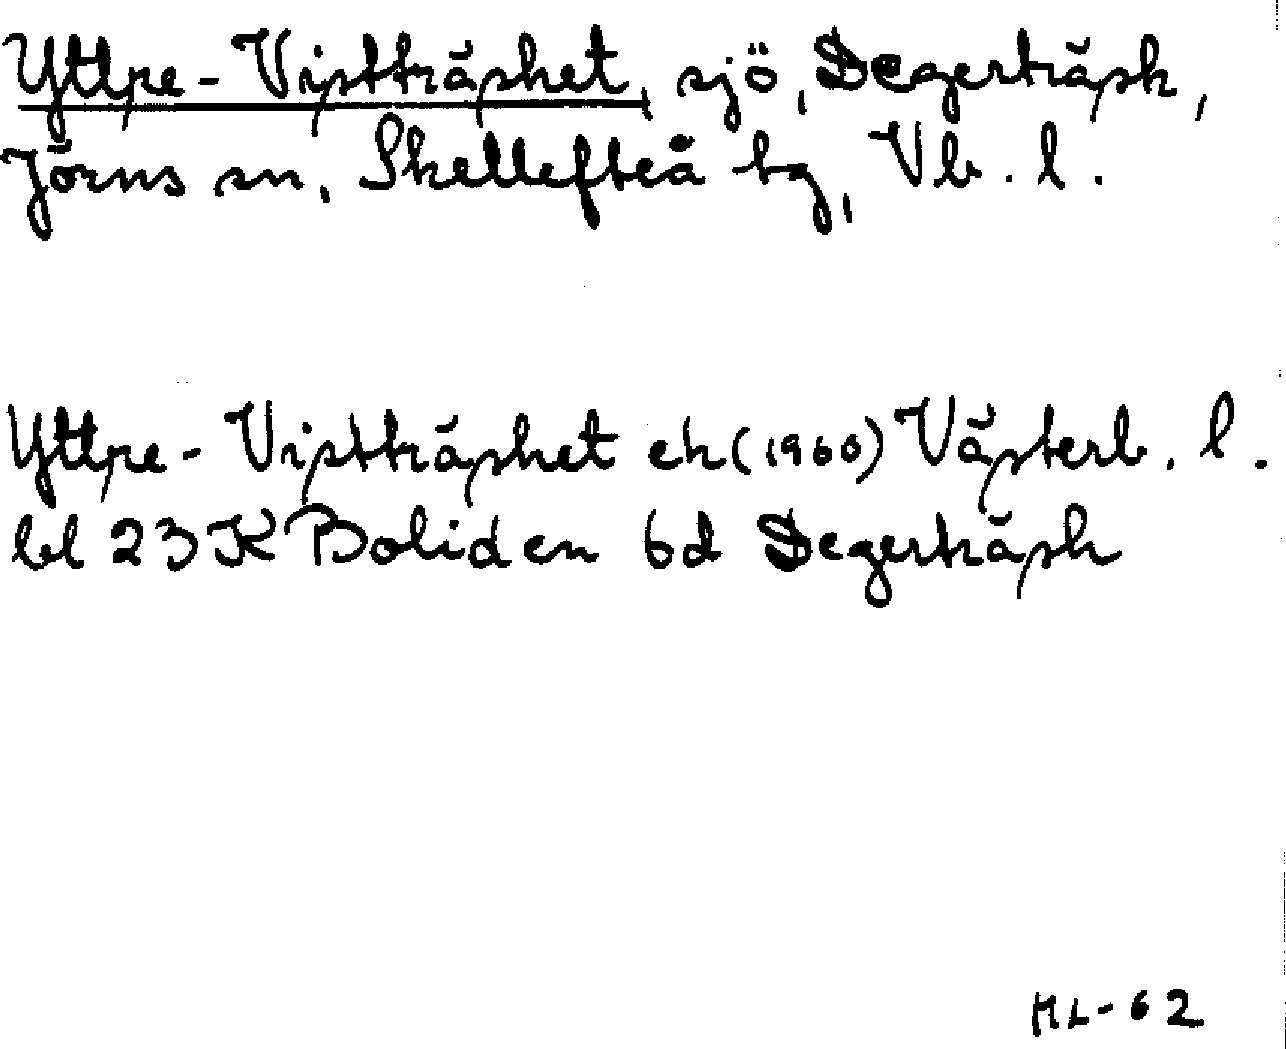 Yttre-Vistträsket, sjö, Degerträsk,
Jörns sn, Skellefteå tg, Vb. l.
Yttre-Vistträsket ek (1960) Västerb. l.
bl 23 K Boliden 6d Degerträsk
HL-62